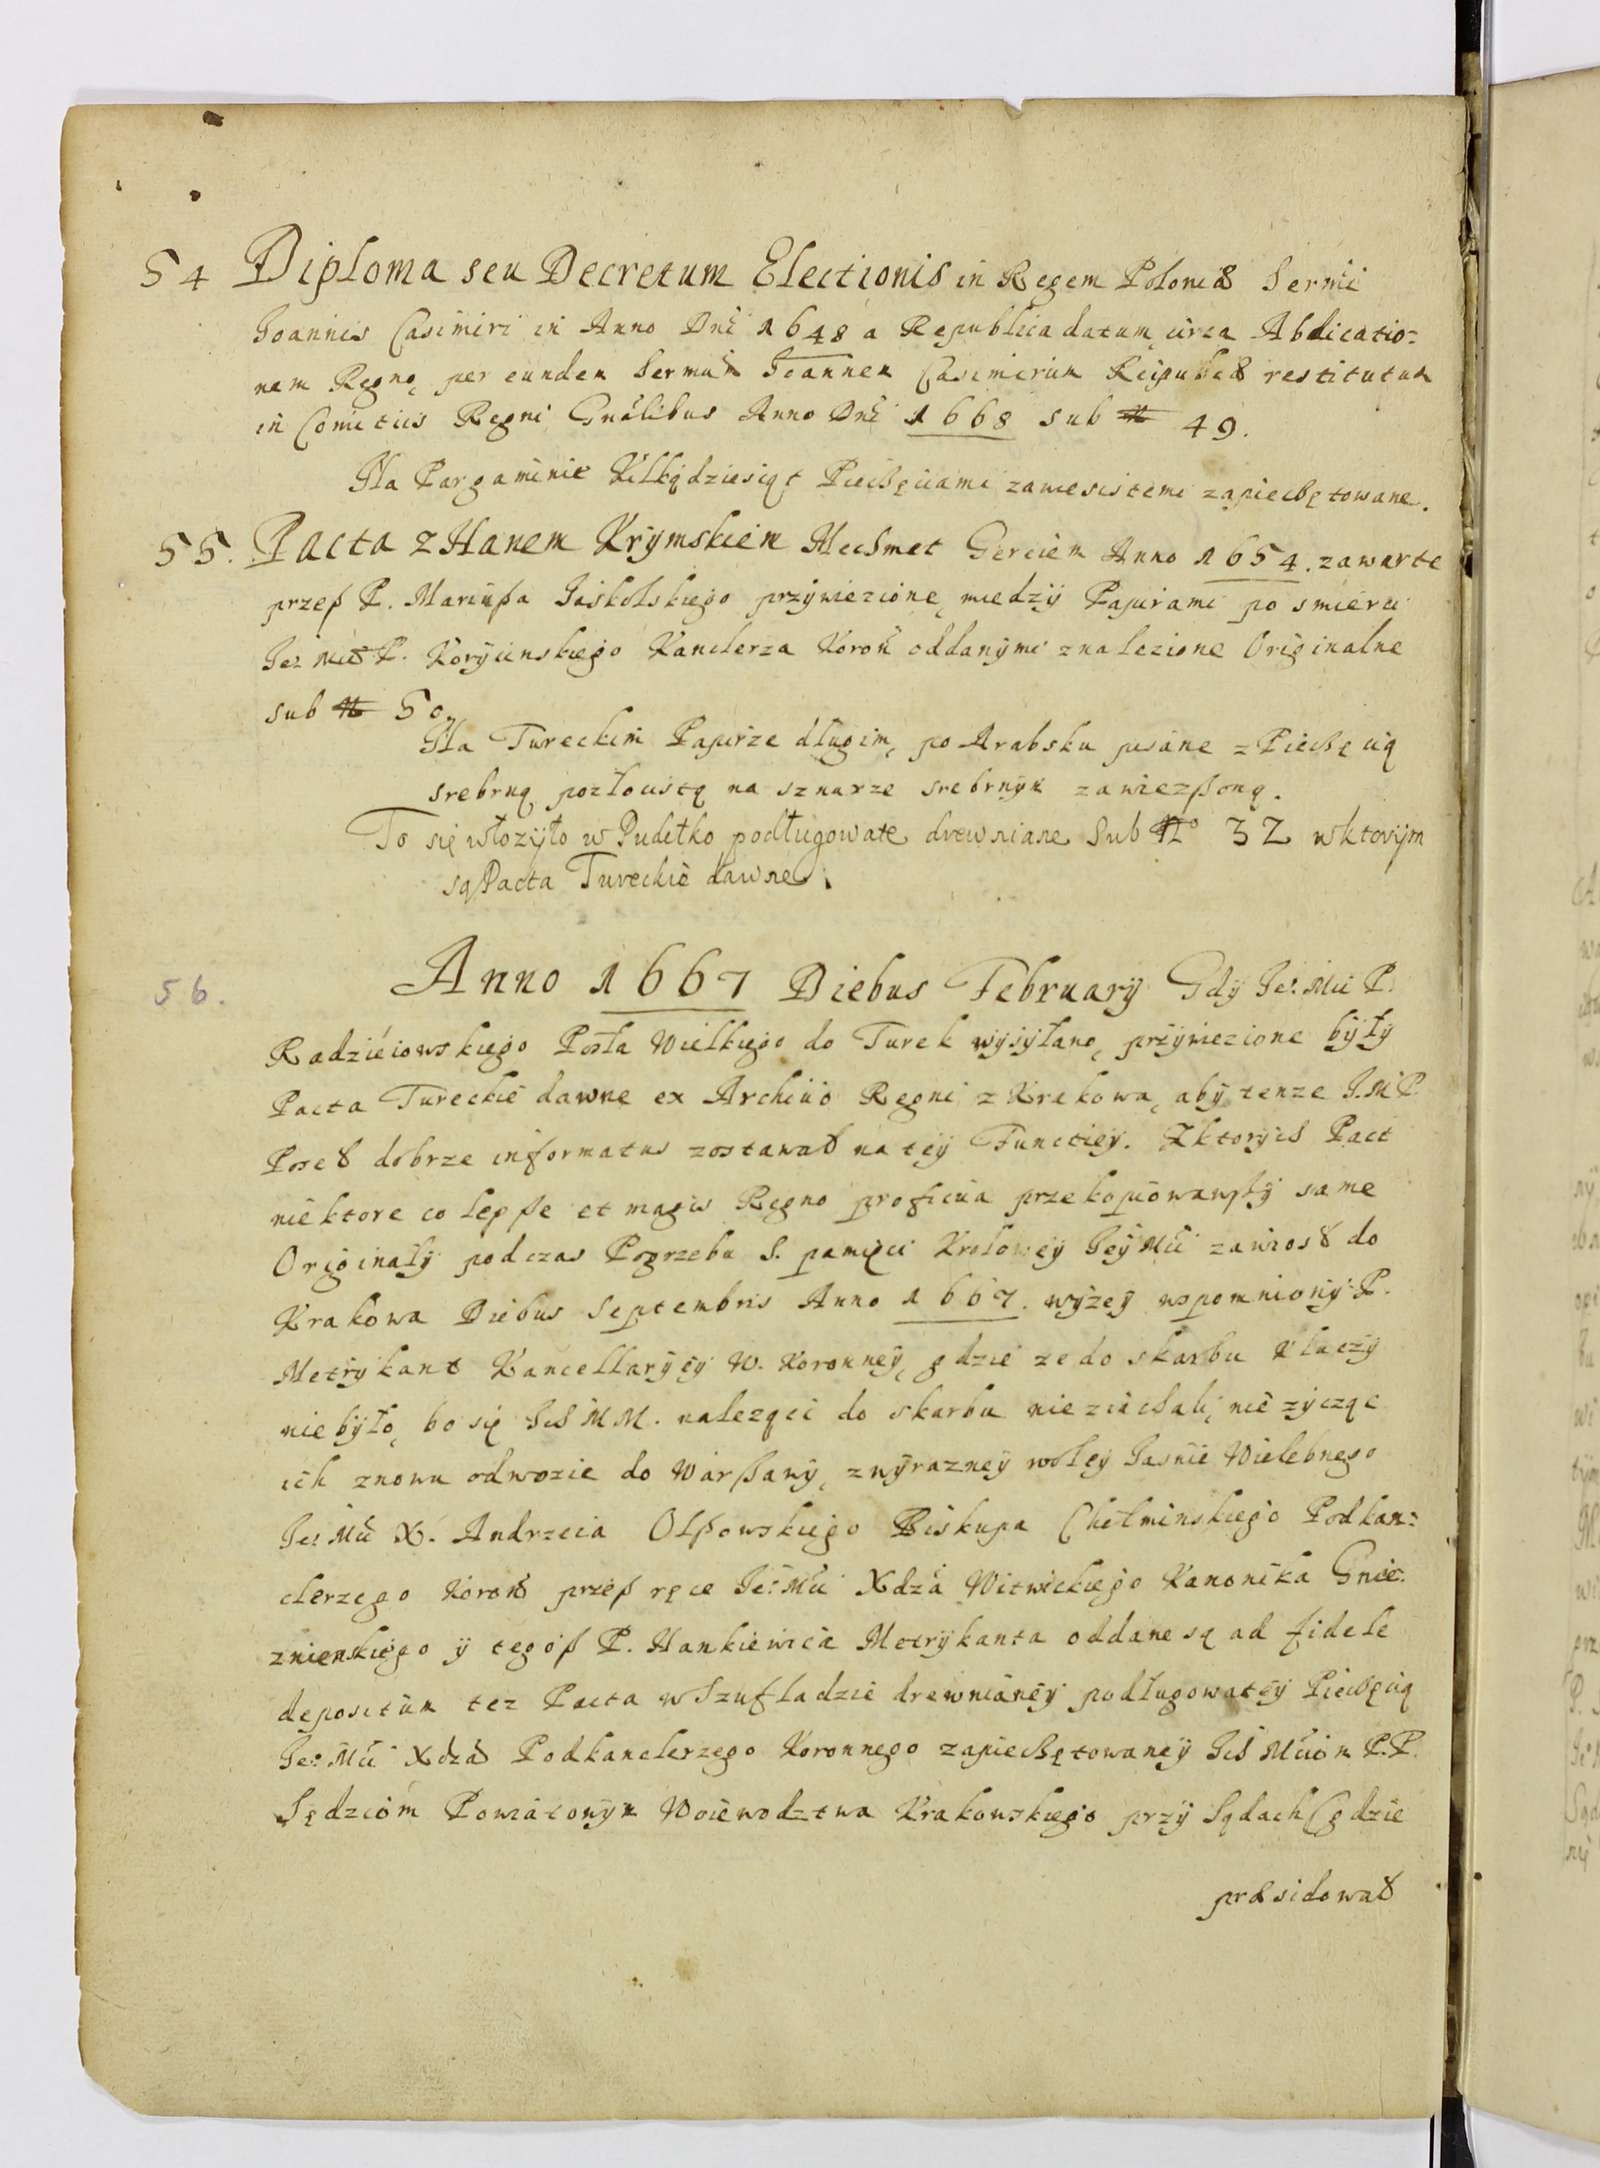 54 Diploma seu Decretum Electionis in Regem Poloniæ Sermi
Joannis Casimiri in Anno Dni 1648 a Republica datum, circa Abdicatio=
nem Regno, per eundem Sermum Joannem Casimirum Reipublicæ restitutum
in Comitiis Regni Gnalibus Anno Dni 1668 sub N 49.
Na Pargaminie Kilkądziesiąt Pieczęciami zawiesistemi zapieczętowane.
55. Pacta z Hanem Krÿmskiem Mechmet Gereiem Anno 1654. zawarte
przeß P. Mariußa Jaskolskiego przÿwiezione, miedzÿ Papirami po smierci
Jeº Mci P. Korÿcinskiego Kanclerza Koron oddanÿmi znalezione Originalne
sub N 50.
Na Tureckim Papirze długim, po Arabsku pisane z Pieczęcią
srebrną pozłocistą na sznurze srebrnÿm zawiezßoną.
To się włozÿło w Pudełko podługowate drewniane Sub Nº 32 wktorÿm
są Pacta Tureckie dawne.
56.
Anno 1667 Diebus Februarÿ Gdÿ Jeº Mci P.
Radzieiowskiego Posła Wielkiego do Turek wÿsÿłano, przÿwiezione bÿłÿ
Pacta Tureckie dawne ex Archiuo Regni z Krakowa, abÿ tenze J. M P.
Poseł dobrze informatus zostawał na teÿ Functieÿ. Z ktorÿch Pact
niektore co lepße et magis Regno proficua przekopiowawßÿ same
Originałÿ podczas Pogrzebu S. pamięci Kroloweÿ Jeÿ Mci zawiosł do
Krakowa Diebus Septembris Anno 1667. wÿzeÿ wspomnionÿ P.
Metrÿkant Kancellarÿeÿ W. Koronneÿ, gdzie ze do skarbu Kluczÿ
niebÿło, bo się Ich MM. nalezący do skarbu nieziachali, nie zÿcząc
ich znowu odwozic do Warßawÿ, z wÿrazneÿ woleÿ Jasnie Wielebnego
Jeº Mci X. Andrzeia Olßowskiego Biskupa Chełminskiego Podkan=
clerzego Koron przeß ręce Jeº Mci Xdza Witwickiego Kanonika Gnie=
znienskiego ÿ tegoß P. Hankiewica Metrÿkanta oddane są ad fidele
depositum tez Pacta w Szufladzie drewnianeÿ podługowateÿ Pieczęcią
Jeº Mci Xdza Podkanclerzego Koronnego zapieczętowaneÿ Ich Mciom P.P.
Sędziom Powiatowÿm Woiewodztwa Krakowskiego przÿ Sądach (gdzie
præsidował